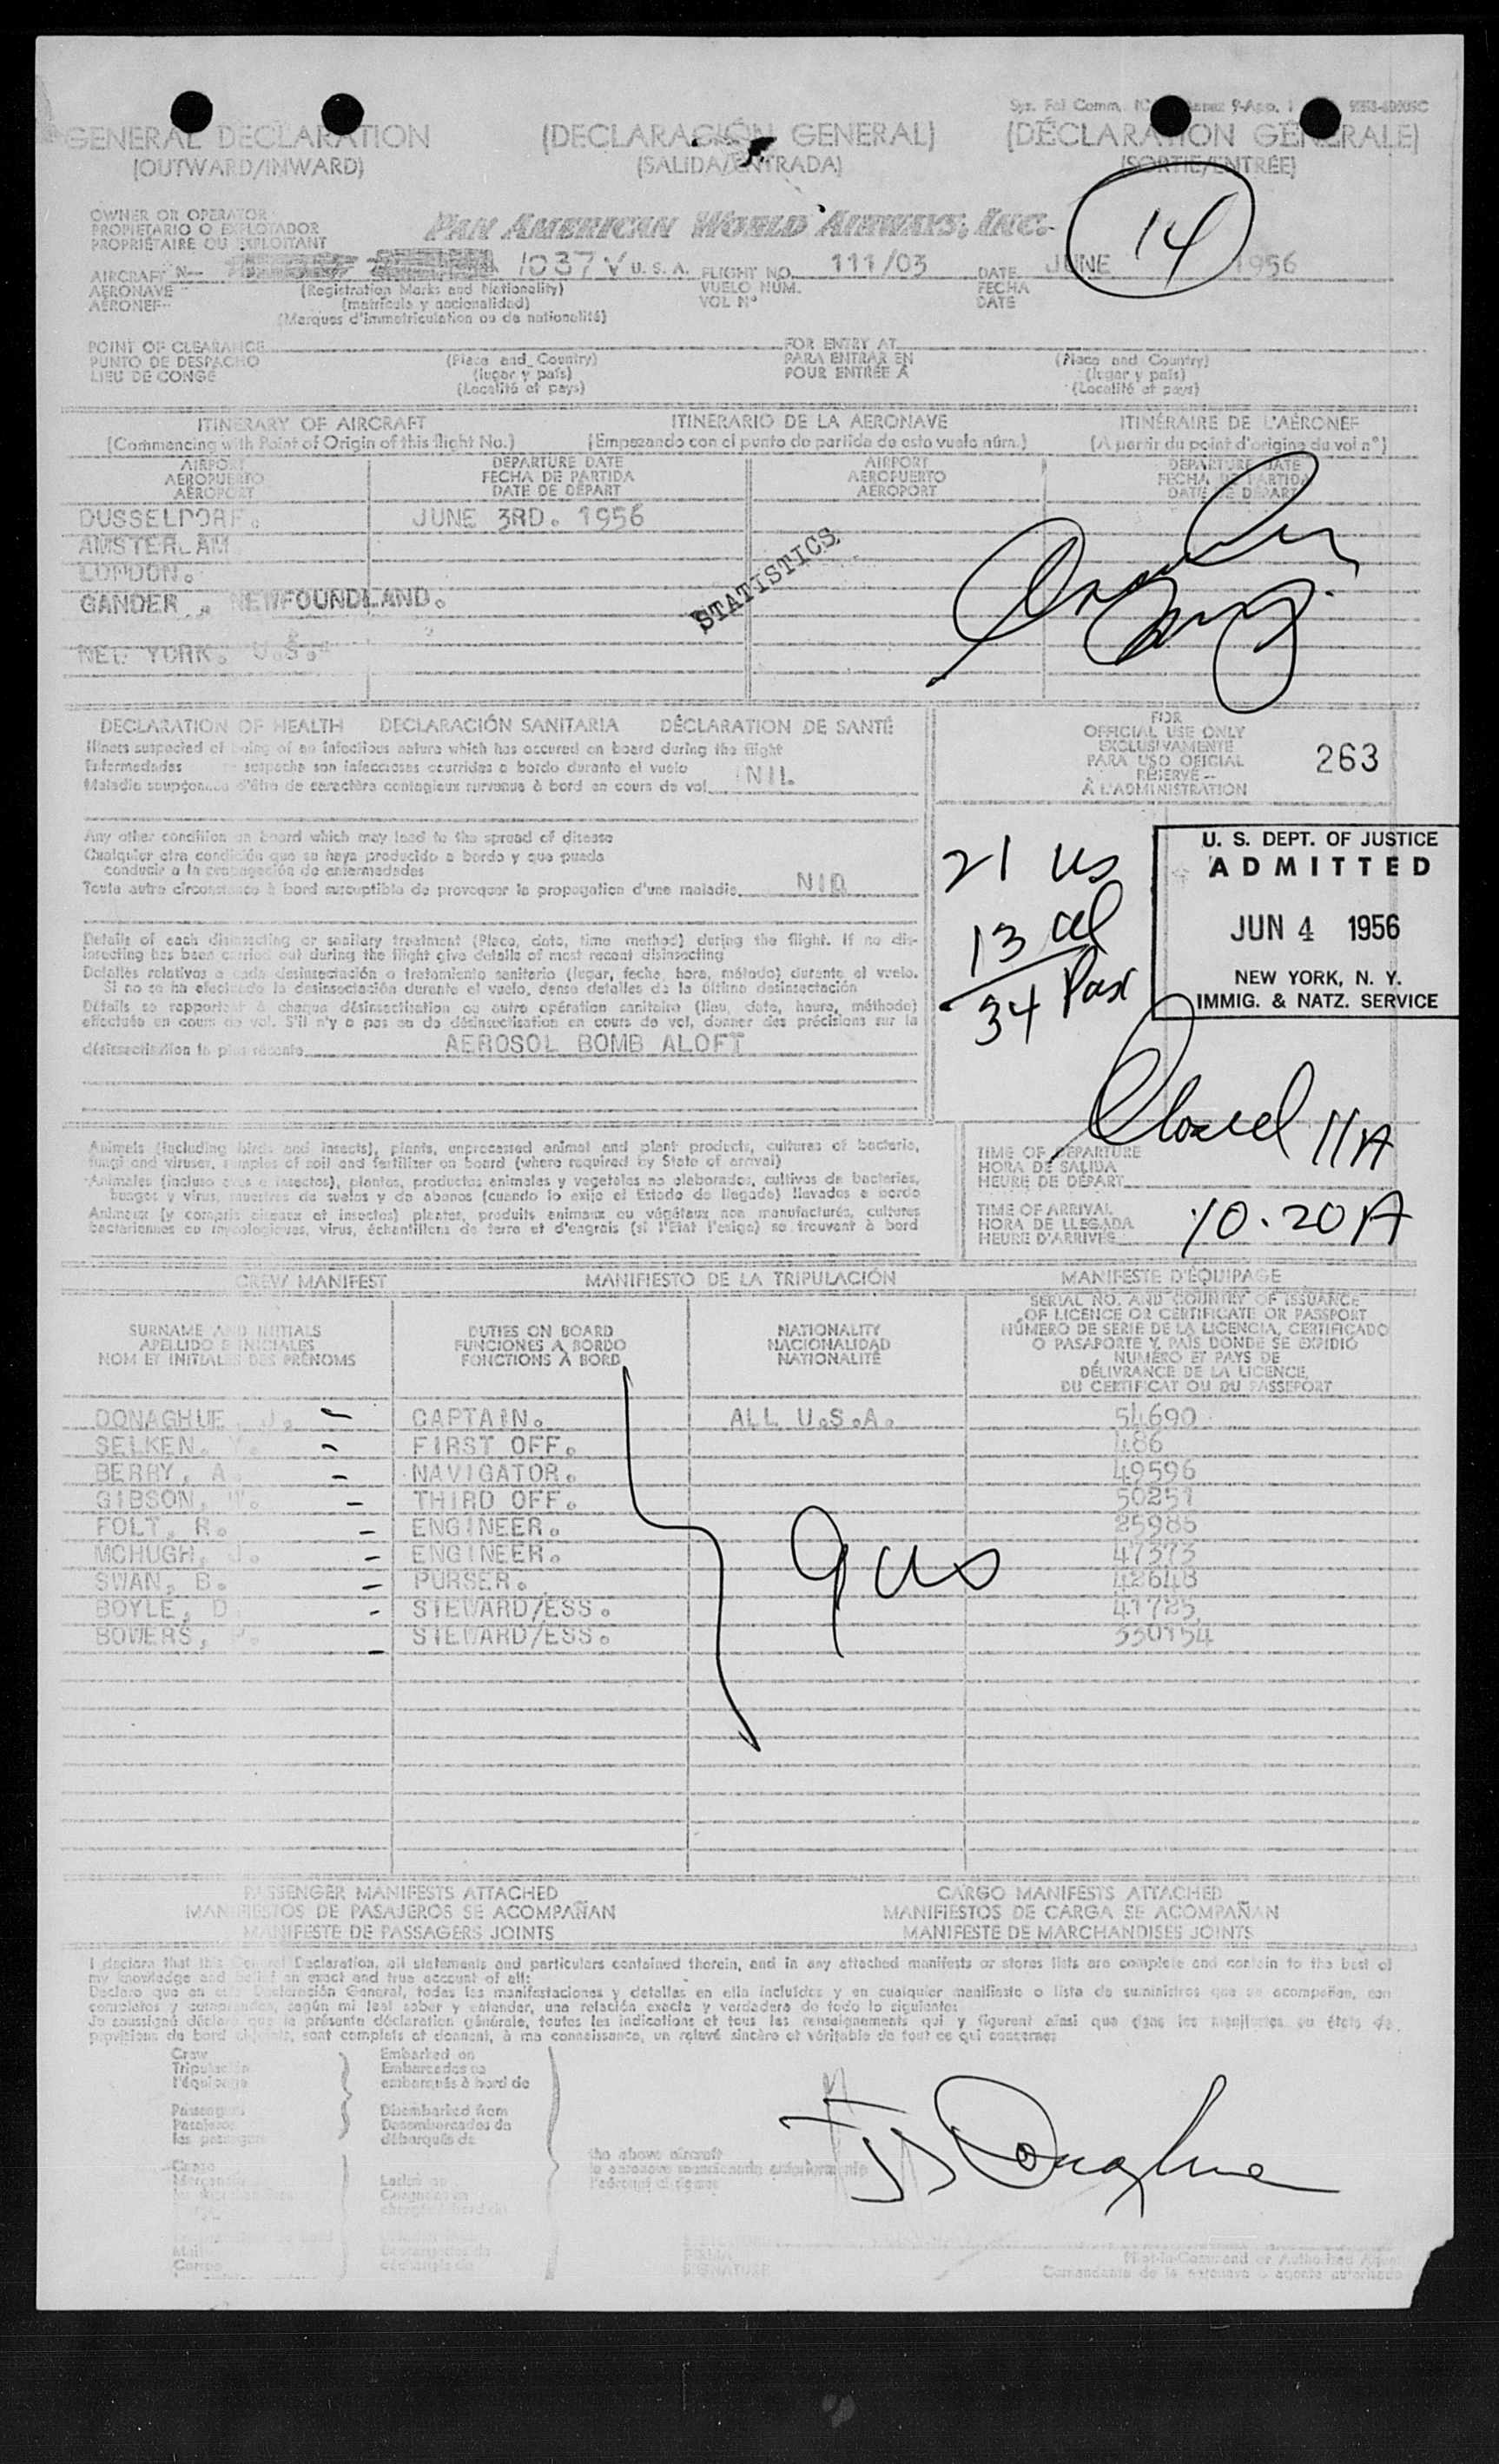 GENERAL DECLARATION (DECLARACIÓN GENERAL) (DÉCLARATION GÉNÉRALE)
(OUTWARD/INWARD) (SALIDA/ENTRADA) (SORTIE/ENTRÉE)
OWNER OR OPERATOR
PROPIETARIO O EXPLOTADOR
PROPRIÉTAIRE OU EXPLOITANT
PAN AMERICAN WORLD AIRWAYS, INC.
14
AIRCRAFT N- 1037V U.S.A. FLIGHT NO. 111/03 DATE JUNE 1956
AERONAVE (Registration Marks and Nationality) VUELO NÚM. FECHA
AÉRONEF (matrícula y nacionalidad) VOL Nº DATE
(Marques d'immatriculation ou de nationalité)
POINT OF CLEARANCE FOR ENTRY AT
PUNTO DE DESPACHO (Place and Country) PARA ENTRAR EN (Place and Country)
LIEU DE CONGÉ (lugar y país) POUR ENTRÉE À (lugar y país)
(Localité et pays) (Localité et pays)
ITINERARY OF AIRCRAFT ITINERARIO DE LA AERONAVE ITINÉRAIRE DE L'AÉRONEF
(Commencing with Point of Origin of this flight No.) (Empezando con el punto de partida de este vuelo núm.) (A partir du point d'origine du vol nº)
AIRPORT DEPARTURE DATE AIRPORT DEPARTURE DATE
AEROPUERTO FECHA DE PARTIDA AEROPUERTO FECHA DE PARTIDA
AÉROPORT DATE DE DÉPART AÉROPORT DATE DE DÉPART
DUSSELDORF. JUNE 3RD. 1956
AMSTERDAM
LONDON.
GANDER, NEWFOUNDLAND.
STATISTICS
NEW YORK. U.S.
DECLARATION OF HEALTH DECLARACIÓN SANITARIA DÉCLARATION DE SANTÉ
Illness suspected of being of an infectious nature which has occured on board during the flight
Enfermedades sospecha son infecciosas ocurridas a bordo durante el vuelo
Maladie soupçonnée d'être de caractère contagieux survenue à bord en cours de vol NIL
FOR
OFFICIAL USE ONLY
EXCLUSIVAMENTE
PARA USO OFICIAL
RÉSERVÉ
À L'ADMINISTRATION
263
Any other condition on board which may lead to the spread of disease
Cualquier otra condición que se haya producido a bordo y que pueda
conducir a la propagación de enfermedades
Toute autre circonstance à bord susceptible de provoquer la propagation d'une maladie
21 US
13 al
34 Pax
U. S. DEPT. OF JUSTICE
ADMITTED
JUN 4 1956
NEW YORK, N. Y.
IMMIG. & NATZ. SERVICE
Details of each disinsecting or sanitary treatment (Place, date, time method) during the flight. If no dis-
insecting has been carried out during the flight give details of most recent disinsecting
Detalles relativos a cada desinsectación o tratamiento sanitario (lugar, fecha, hora, método) durante el vuelo.
Si no se ha efectuado la desinsectación durante el vuelo, dense detalles de la última desinsectación
Détails se rapportant à chaque désinsectisation ou autre opération sanitaire (lieu, date, heure, méthode)
effectuée en cours de vol. S'il n'y a pas eu de désinsectisation en cours de vol, donner des précisions sur la
désinsectisation la plus récente AEROSOL BOMB ALOFT
Closed 11A
Animals (including birds and insects), plants, unprocessed animal and plant products, cultures of bacteria,
fungi and viruses, samples of soil and fertilizer on board (where required by State of arrival)
Animales (incluso aves e insectos), plantas, productos animales y vegetales no elaborados, cultivos de bacterias,
hongos y virus, muestras de suelos y de abonos (cuando lo exije el Estado de llegada) llevados a bordo
Animaux (y compris oiseaux et insectes) plantes, produits animaux ou végétaux non manufacturés, cultures
bactériennes ou mycologiques, virus, échantillons de terre et d'engrais (si l'Etat l'exige) se trouvant à bord
TIME OF DEPARTURE
HORA DE SALIDA
HEURE DE DÉPART
TIME OF ARRIVAL
HORA DE LLEGADA
HEURE D'ARRIVÉE 10.20A
CREW MANIFEST MANIFIESTO DE LA TRIPULACIÓN MANIFESTE D'ÉQUIPAGE
SURNAME AND INITIALS
APELLIDO E INICIALES
NOM ET INITIALES DES PRÉNOMS
DUTIES ON BOARD
FUNCIONES A BORDO
FONCTIONS À BORD
NATIONALITY
NACIONALIDAD
NATIONALITÉ
SERIAL NO. AND COUNTRY OF ISSUANCE
OF LICENCE OR CERTIFICATE OR PASSPORT
NÚMERO DE SERIE DE LA LICENCIA, CERTIFICADO
O PASAPORTE Y PAÍS DONDE SE EXPIDIÓ
NUMÉRO ET PAYS DE
DÉLIVRANCE DE LA LICENCE,
DU CERTIFICAT OU DU PASSEPORT
DONAGHUE, J. CAPTAIN. ALL U.S.A. 54690
SELKEN. FIRST OFF. 486
BERRY, A. NAVIGATOR. 49596
GIBSON, THIRD OFF. 50251
FOLT, R. ENGINEER. 25985
MCHUGH, J. ENGINEER. 47373
SWAN, B. PURSER. 42648
BOYLE, D. STEWARD/ESS. 41725
BOWERS, STEWARD/ESS. 330154
9 US
PASSENGER MANIFESTS ATTACHED CARGO MANIFESTS ATTACHED
MANIFIESTOS DE PASAJEROS SE ACOMPAÑAN MANIFIESTOS DE CARGA SE ACOMPAÑAN
MANIFESTE DE PASSAGERS JOINTS MANIFESTE DE MARCHANDISES JOINTS
I declare that this General Declaration, all statements and particulars contained therein, and in any attached manifests or stores lists are complete and contain to the best of
my knowledge and belief an exact and true account of all:
Declaro que en esta Declaración General, todas las manifestaciones y detalles en ella incluídos y en cualquier manifiesto o lista de suministros que se acompañan, son
completos y comprenden, según mi leal saber y entender, una relación exacta y verdadera de todo lo siguiente:
Je soussigné déclare que la présente déclaration générale, toutes les indications et tous les renseignements qui y figurent ainsi que dans les manifestes ou états de
provisions de bord, sont complets et donnent, à ma connaissance, un relevé sincère et véritable de tout ce qui concerne:
Crew Embarked on
Tripulación Embarcados en
l'équipage embarqués à bord de
Passengers Disembarked from
Pasajeros Desembarcados de
les passagers débarqués de
the above aircraft
la aeronave mencionada anteriormente
Cargo
JJ Donaghue
Pilot-in-Command or Authorized Agent
Comandante de la aeronave o agente autorizado